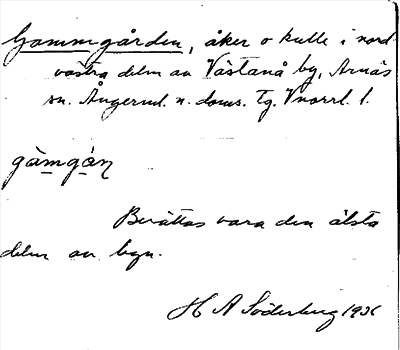 Gammgården, åker o kulle i nord-
västra delen av Västanå by, Arnäs
sn. Ångerml. n. doms. tg. Vnorrl. l.
gàmgá̀n
Berättas vara den älsta
delen av byn.
H A Söderberg 1936